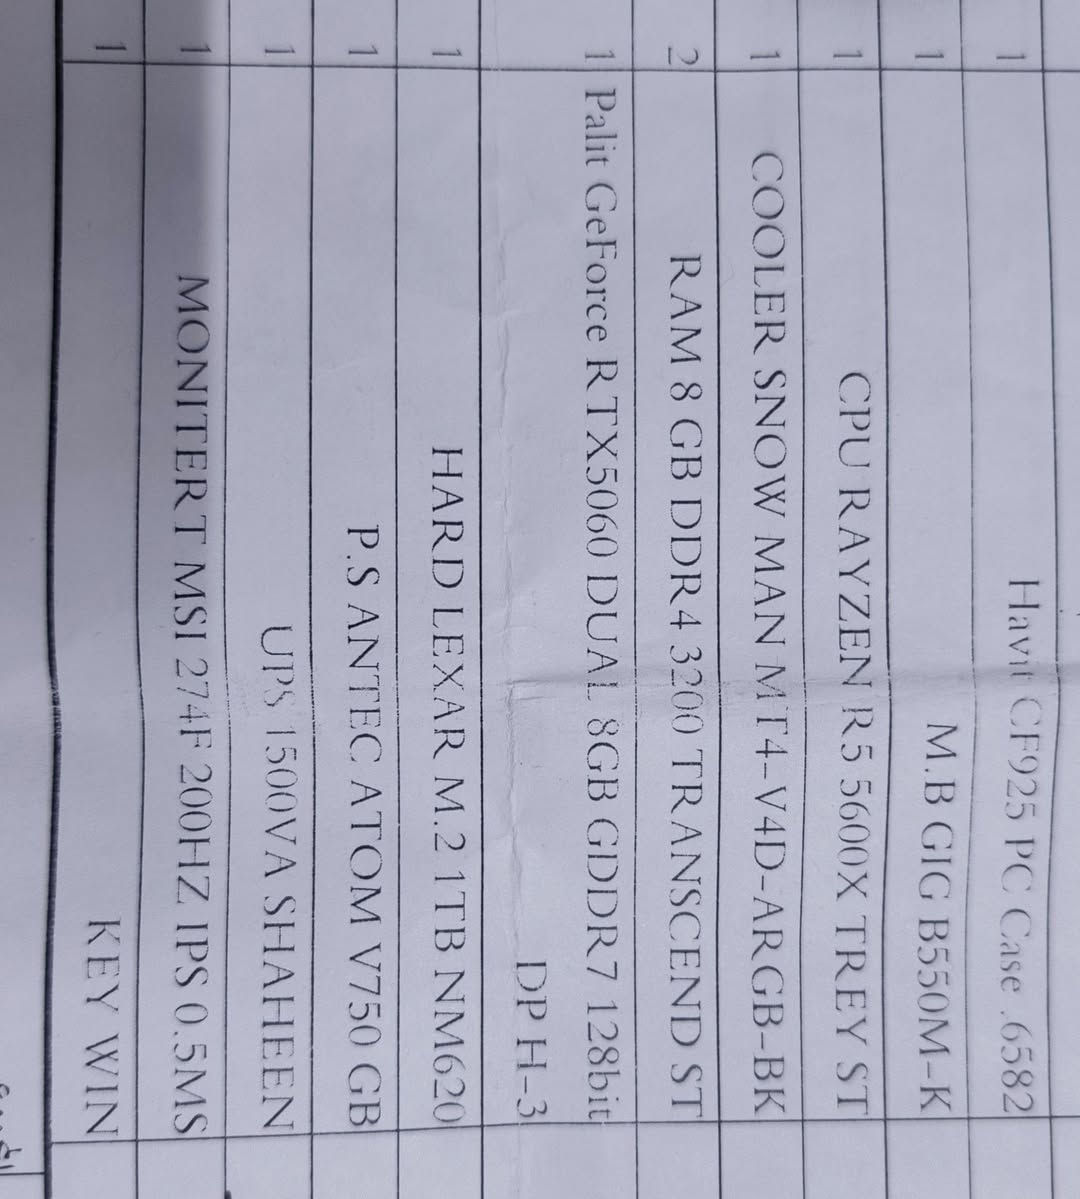 1 Havit CF925 PC Case .6582
1 M.B GIG B550M-K
1 CPU RAYZEN R5 5600X TREY ST
1 COOLER SNOW MAN MT4-V4D-ARGB-BK
2 RAM 8 GB DDR4 3200 TRANSCEND ST
1 Palit GeForce RTX5060 DUAL 8GB GDDR7 128bit
DP H-3
1 HARD LEXAR M.2 1TB NM620
1 P.S ANTEC ATOM V750 GB
1 UPS 1500VA SHAHEEN
1 MONITER T MSI 274F 200HZ IPS 0.5MS
1 KEY WIN